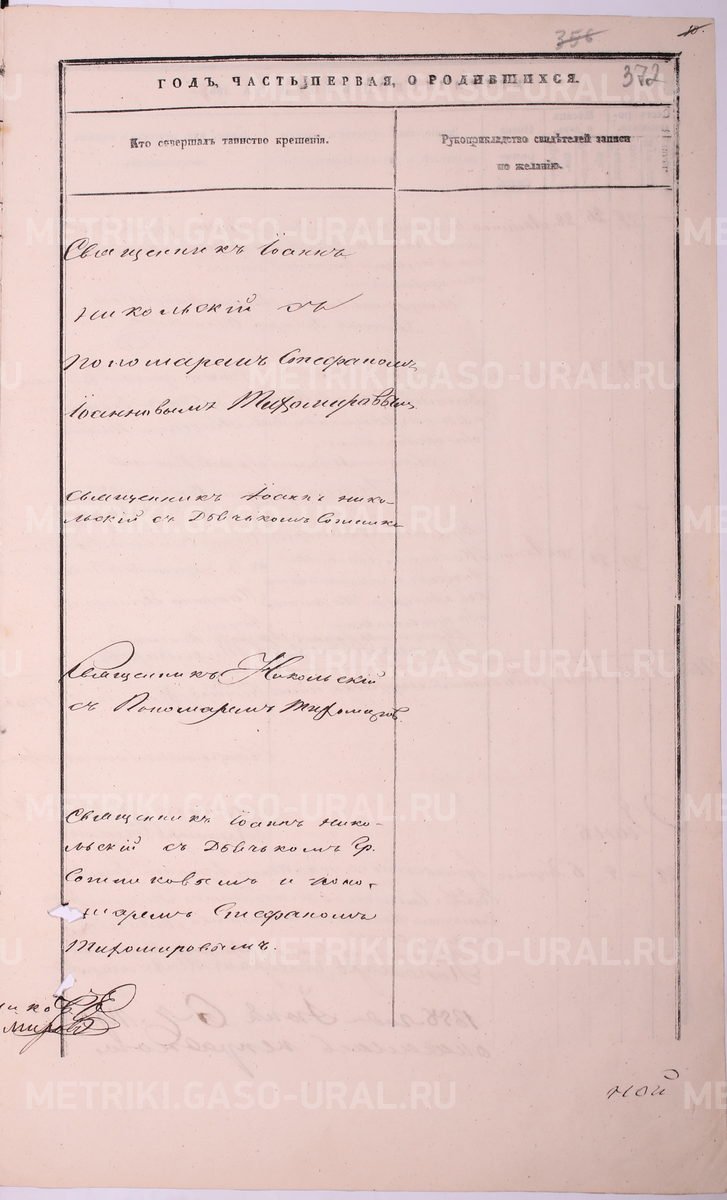 356
372
ГОДЪ, ЧАСТЬ ПЕРВАЯ, О РОДИВШИХСЯ.
Кто совершалъ таинство крещенія.
Рукоприкладство свидѣтелей записи
по желанію.
Священникъ Іоаннъ
Никольскій съ
Пономаремъ Стефаномъ
Іоанновымъ Тихомировымъ
Священникъ Іоаннъ Нико-
льскій съ Дьячькомъ
Священникъ Никольскій
съ Пономаремъ Тихомиров.
Священникъ Іоаннъ Нико-
льскій съ Дьячькомъ Гр.
Сотниковымъ и Поно-
маремъ Стефаномъ
Тихомировымъ.
ной
METRIKI.GASO-URAL.RU